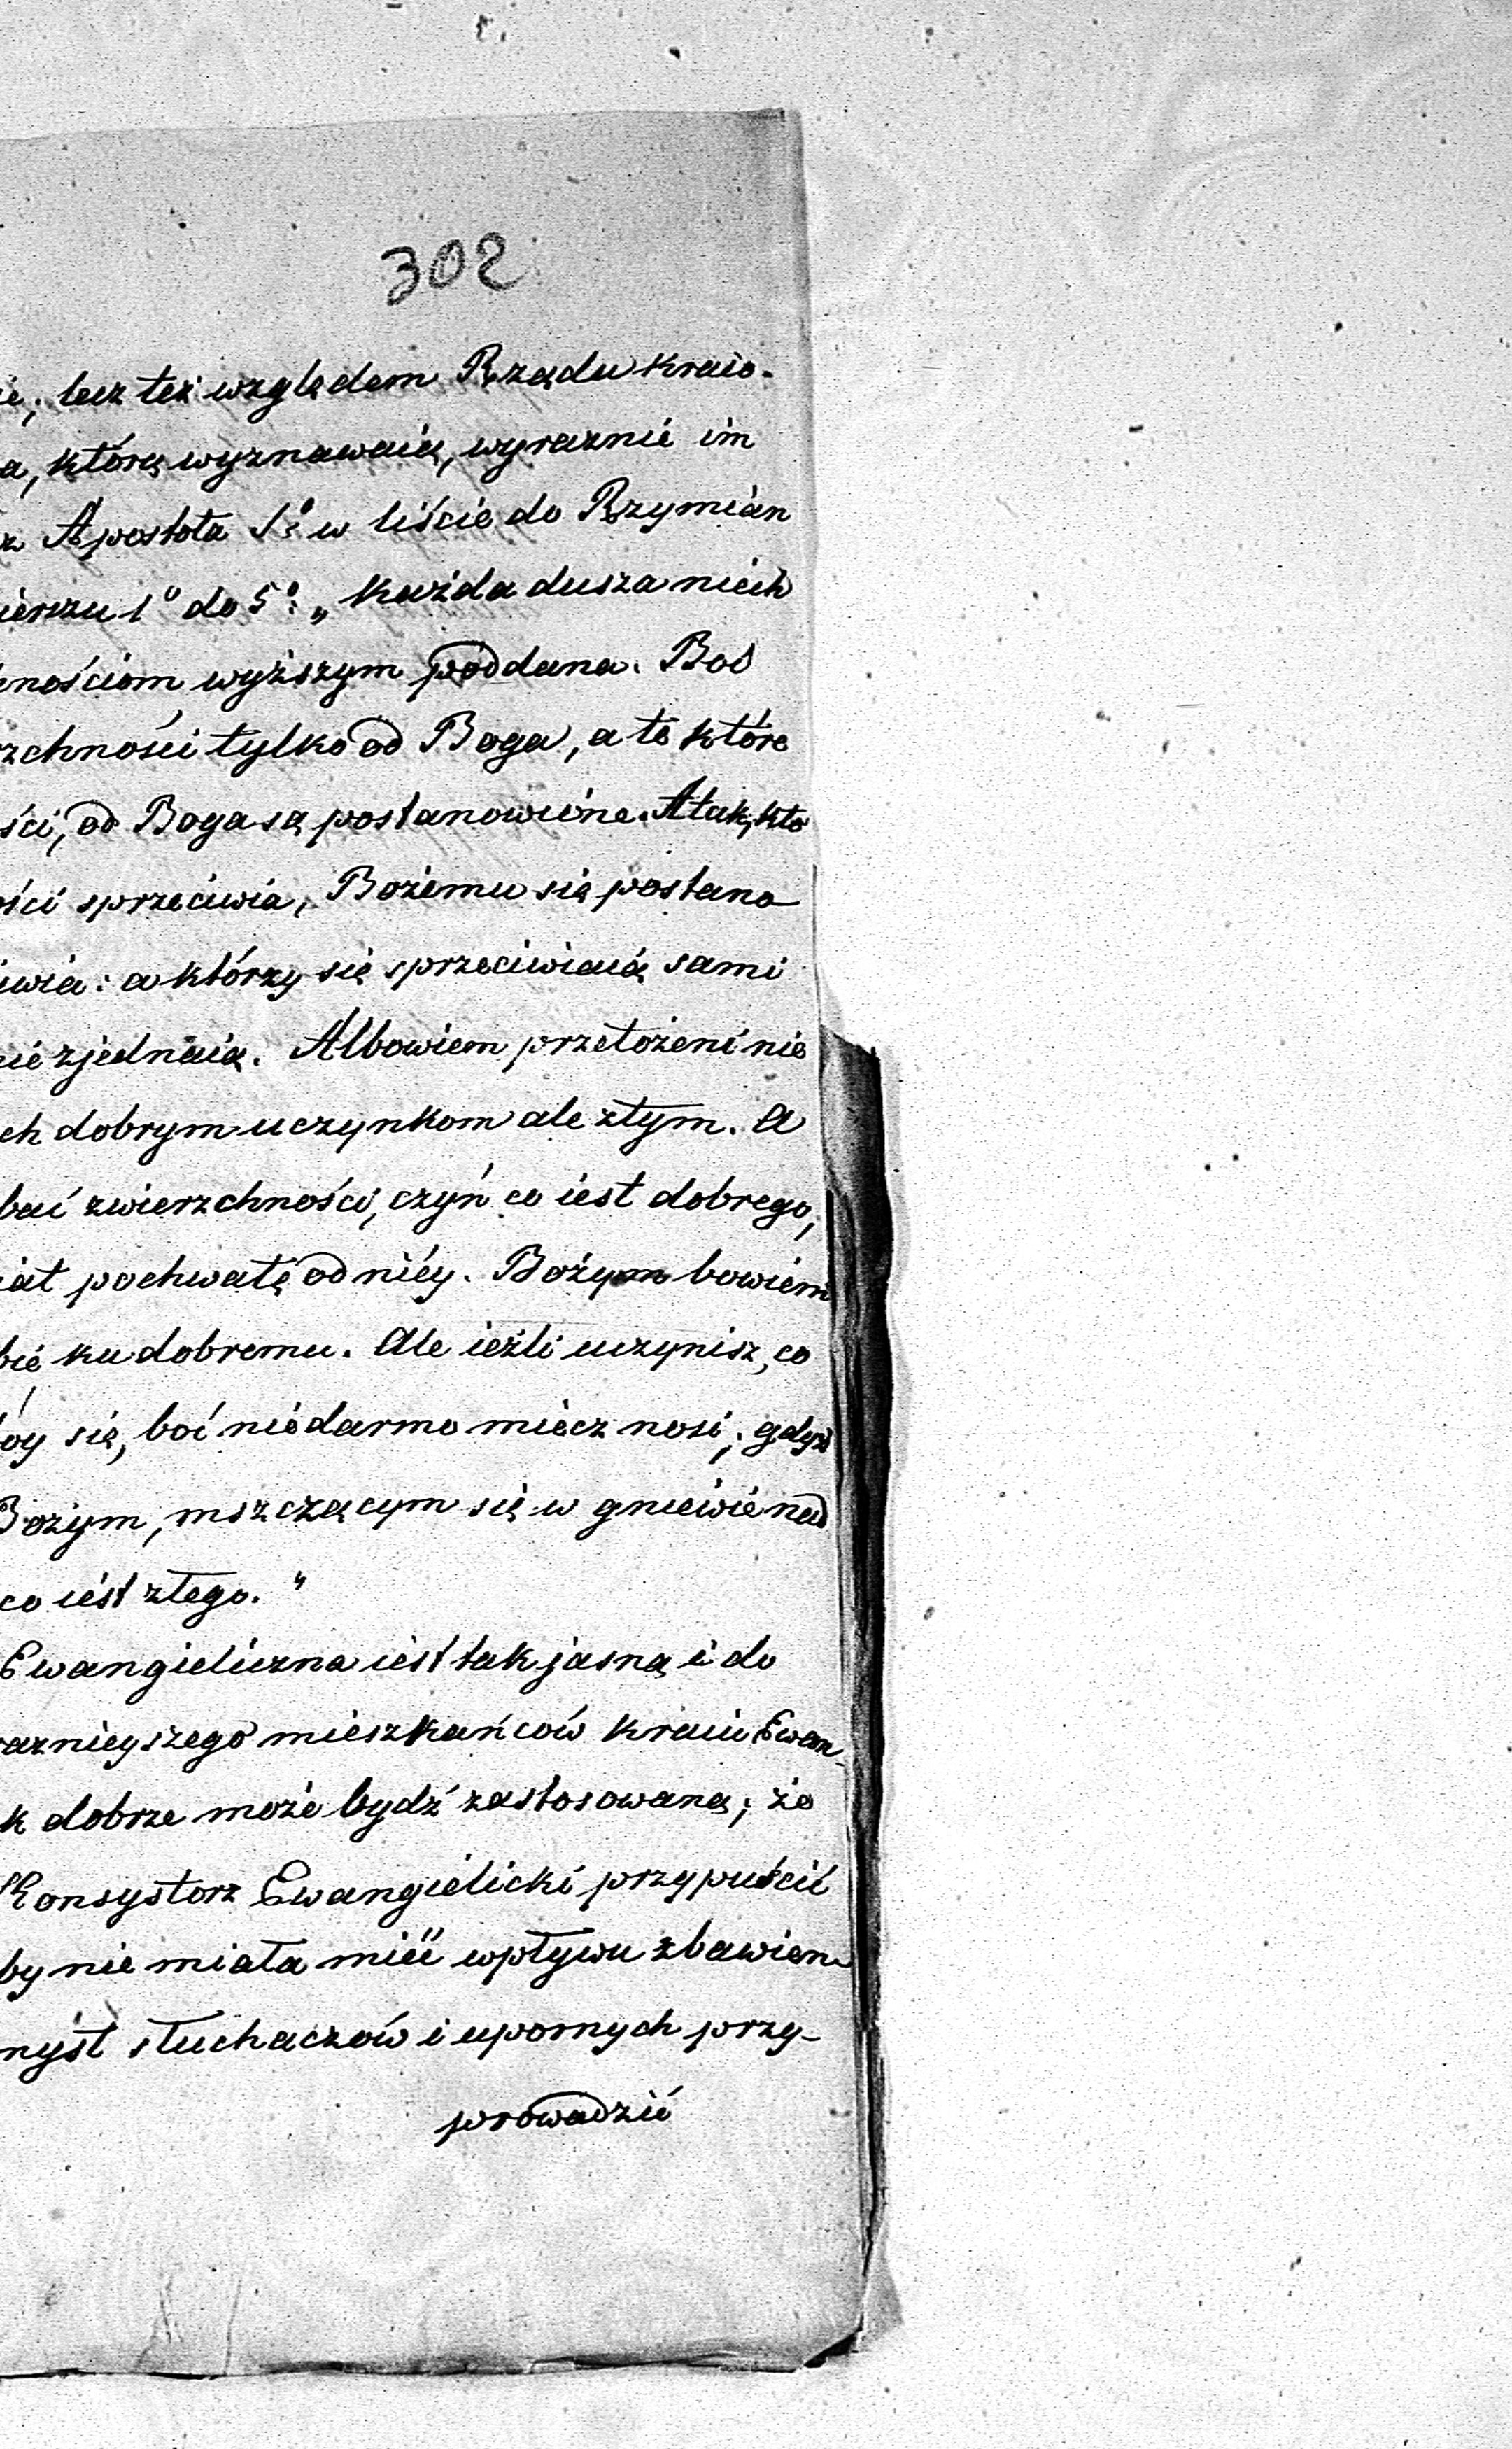 302
ie; lecz też względem Rządu kraio-
a, którą wyznawaią, wyraznie im
z Apostoła 1º w liście do Rzymian
ierszu 1º do 5º: „Każda dusza niech
nościom wyższym poddana. Boć
zchności tylko od Boga, a te które
ści, od Boga są postanowione. A tak, kto
ości sprzeciwia, Bożemu się postano
iwia: a którzy się sprzeciwiaią sami
ie zjednaią. Albowiem przełożeni nie
ch dobrym uczynkom ale złym. A
bać zwierzchności, czyń co iest dobrego,
iał pochwałę od niéy. Bożym bowiem
bie ku dobremu. Ale ieżli uczynisz, co
óy się, boć niedarmo miecz nosi; gdyż
Bożym, mszczącym się w gniewie nad
co iest złego.“
Ewangieliczna iest tak jasną i do
aznieyszego mieszkańców kraiu Ewan-
k dobrze może bydź zastosowaną; że
Konsystorz Ewangielicki przypuścić
by nie miała mieć wpływu zbawien-
mysł słuchaczów i upornych przy-
prowadzić